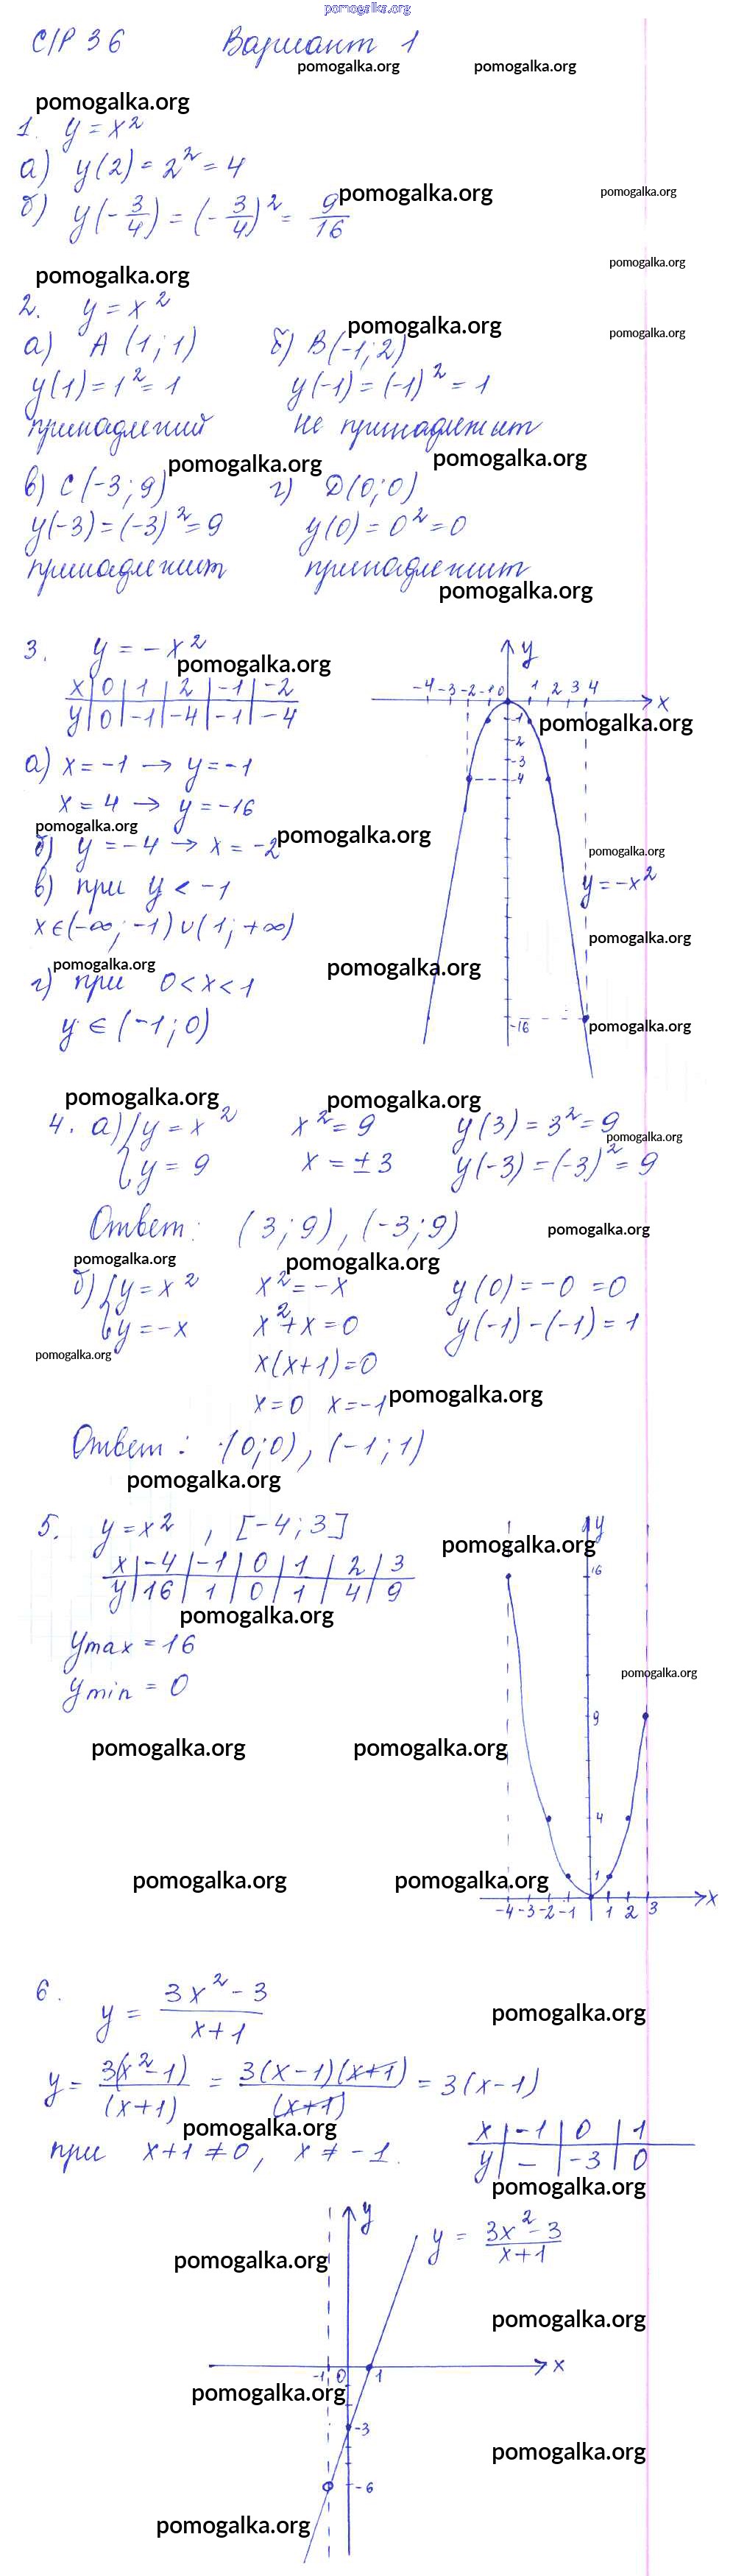 pomogalka.org
С/Р 36 Вариант 1
pomogalka.org pomogalka.org
pomogalka.org
1. y = x²
а) y(2) = 2² = 4
б) y(-3/4) = (-3/4)² = 9/16
pomogalka.org pomogalka.org
pomogalka.org
pomogalka.org
2. y = x²
pomogalka.org pomogalka.org
а) A (1; 1) б) B(-1; 2)
y(1) = 1² = 1 y(-1) = (-1)² = 1
принадлежит не принадлежит
pomogalka.org pomogalka.org
в) C (-3; 9) г) D(0; 0)
y(-3) = (-3)² = 9 y(0) = 0² = 0
принадлежит принадлежит
pomogalka.org
3. y = -x²
pomogalka.org
x 0 1 2 -1 -2
y 0 -1 -4 -1 -4
y
-4 -3 -2 -1 0 1 2 3 4 x
-1
pomogalka.org
-2
-3
-4
а) x = -1 → y = -1
x = 4 → y = -16
pomogalka.org pomogalka.org
б) y = -4 → x = -2
pomogalka.org
в) при y < -1
y = -x²
x ∈ (-∞; -1) ∪ (1; +∞)
pomogalka.org
pomogalka.org pomogalka.org
г) при 0 < x < 1
y ∈ (-1; 0)
-16 pomogalka.org
pomogalka.org pomogalka.org
4. а) { y = x² x² = 9 y(3) = 3² = 9
pomogalka.org
y = 9 x = ±3 y(-3) = (-3)² = 9
Ответ: (3; 9), (-3; 9)
pomogalka.org
pomogalka.org pomogalka.org
б) { y = x² x² = -x y(0) = -0 = 0
y = -x x² + x = 0 y(-1) - (-1) = 1
pomogalka.org
x(x+1) = 0
x = 0 x = -1
pomogalka.org
Ответ: (0; 0), (-1; 1)
pomogalka.org
5. y = x², [-4; 3]
pomogalka.org
x -4 -1 0 1 2 3
y 16 1 0 1 4 9
pomogalka.org
y max = 16
y min = 0
y
16
pomogalka.org
9
pomogalka.org pomogalka.org
4
pomogalka.org pomogalka.org
1
-4 -3 -2 -1 1 2 3 x
6. y = (3x² - 3)/(x + 1)
pomogalka.org
y = 3(x² - 1)/(x+1) = 3(x-1)(x+1)/(x+1) = 3(x-1)
pomogalka.org
при x+1 ≠ 0, x ≠ -1.
x -1 0 1
y - -3 0
pomogalka.org
y
y = (3x² - 3)/(x+1)
pomogalka.org
pomogalka.org
-1 0 1 x
pomogalka.org
-3
pomogalka.org
-6
pomogalka.org